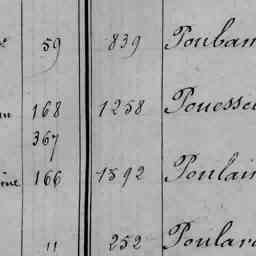 59 839 Pouban
168 1258 Pouesse
367
ine 166 1592 Poulain
" 252 Poulard